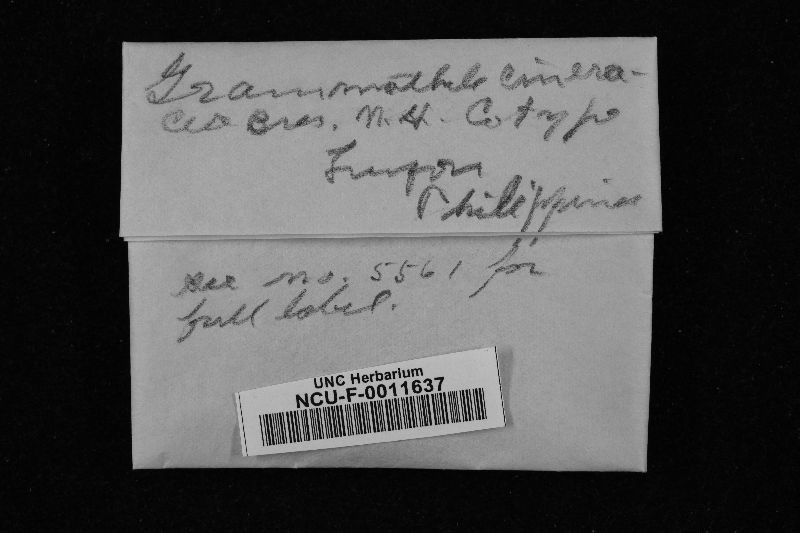 Grammothele cinera-
ceo Bres. n.
Cotype
Luzon
Philippines
see no. 5561 for
full label.
UNC Herbarium
NCU-F-0011637